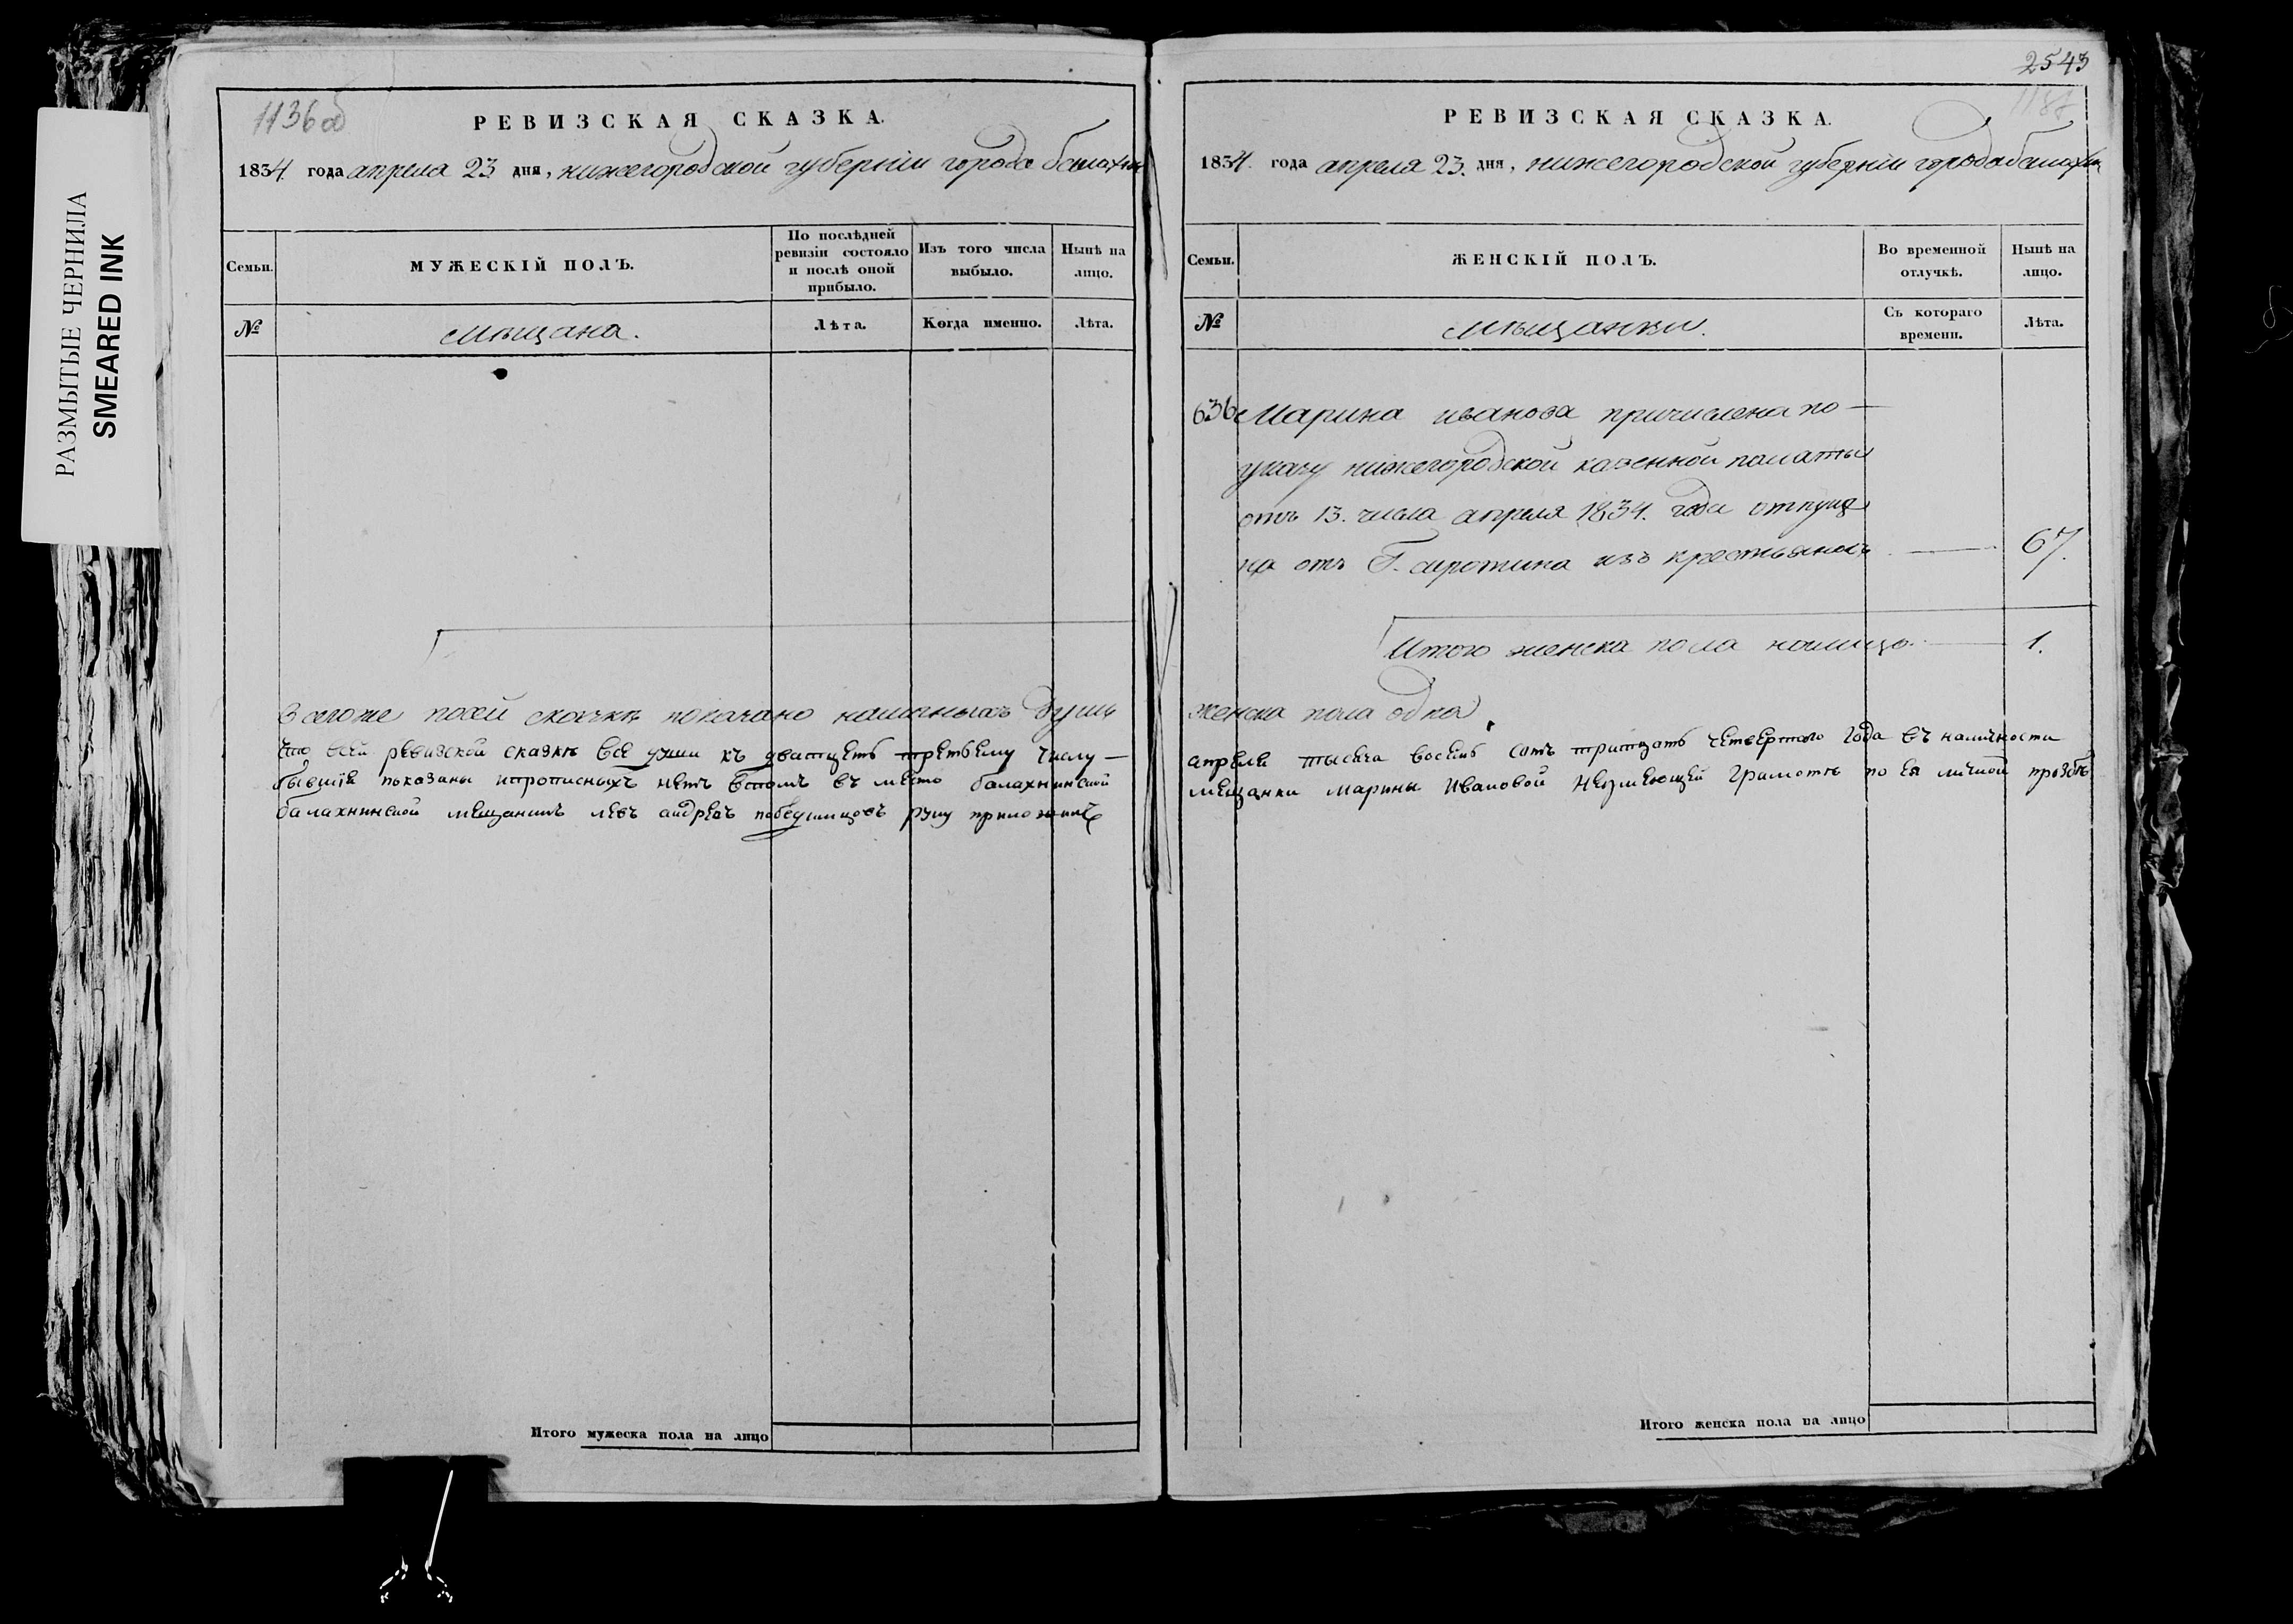 РАЗМЫТЫЕ ЧЕРНИЛА
SMEARED INK
1136 об
РЕВИЗСКАЯ СКАЗКА.
1834. года апреля 23 дня, нижегородской губерніи города балахны
Семьи.
МУЖЕСКІЙ ПОЛЪ.
По послѣдней ревизіи состояло и послѣ оной прибыло.
Изъ того числа выбыло.
Нынѣ на лицо.
№
мѣщана.
Лѣта.
Когда именно.
Лѣта.
Всего же посей скаскѣ показано наличныхъ душъ
Что всей ревизской сказкѣ все души къ дватцеть третьему числу —
бывшіе показаны ипрописныхъ нетъ втомъ въ место балахнинской
балахнинской мещанинъ левъ андреевъ победимцовъ руку приложилъ
Итого мужеска пола на лицо
2543
РЕВИЗСКАЯ СКАЗКА.
1834. года апреля 23. дня, нижегородской губерніи города балахны
Семьи.
ЖЕНСКІЙ ПОЛЪ.
Во временной отлучкѣ.
Нынѣ на лицо.
№
мѣщанки.
Съ котораго времени.
Лѣта.
636 Марина иванова причислена по —
указу нижегородской казенной палаты
отъ 13. числа апреля 1834. года отпуще
на отъ Г. сиротина изъ крестьянокъ — 67.
Итого женска пола налицо — 1.
женска пола одна
апреля тысяча восемь сотъ тритцать четвертого года въ наличности
мещанки марины Ивановой неумеющей грамоте по ея личной прозбе
Итого женска пола на лицо